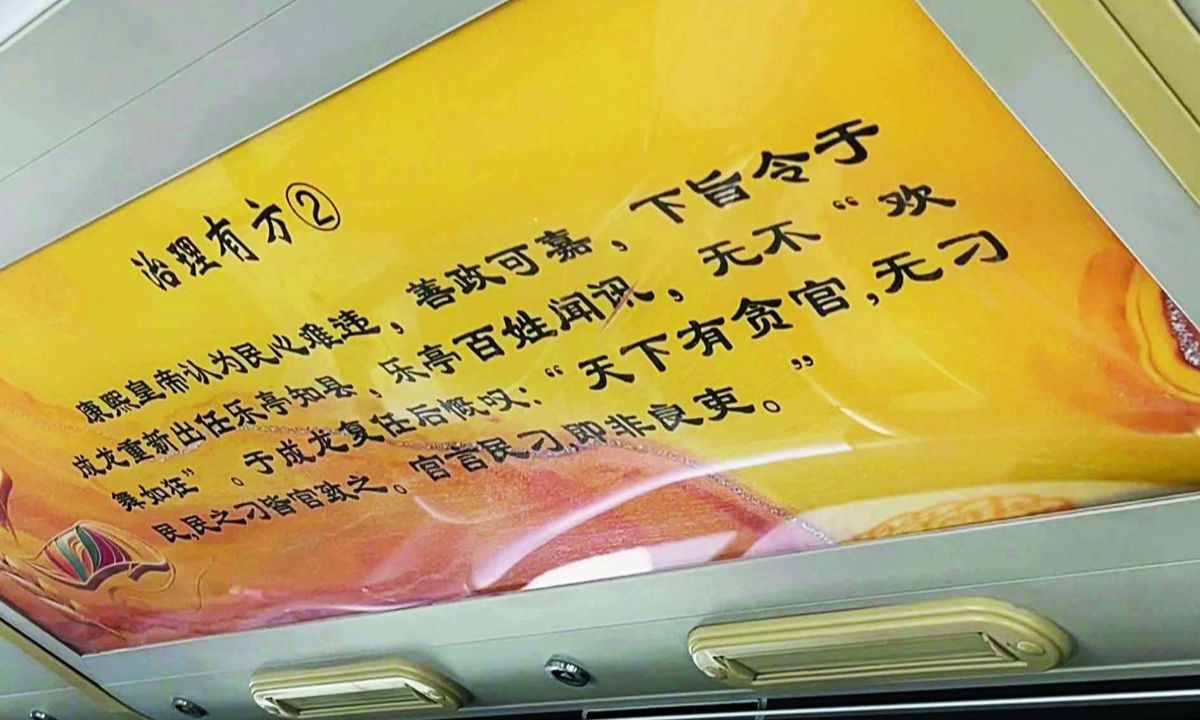 治理有方②
康熙皇帝认为民心难违，善政可嘉，下旨令于
成龙重新出任乐亭知县，乐亭百姓闻讯，无不“欢
舞如狂”。于成龙复任后慨叹：“天下有贪官，无刁
民，民之刁皆官致之。官言民刁，即非良吏。”